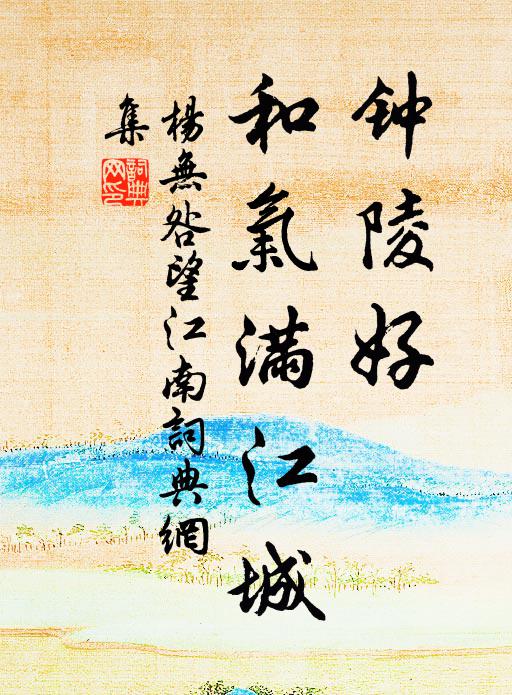 钟陵好
和氣滿江城
楊無咎望江南詞典網
集
詞典網印